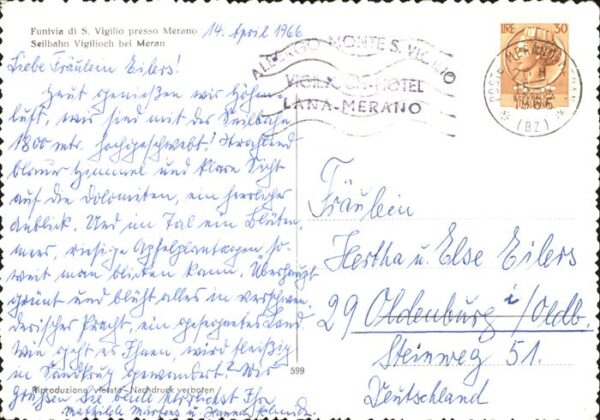 Funivia di S. Vigilio presso Merano
Seilbahn Vigiljoch bei Meran
14. April 1966
Liebe Fräulein Eilers!
Heut genießen wir Höhen-
luft, wir sind mit der Seilbahn
1800 mtr. hochgeschwebt! Strahlend
blauer Himmel und klare Sicht
auf die Dolomiten, ein herrlicher
Anblick. Und im Tal ein Blüten-
meer, riesige Apfelplantagen so-
weit man blicken kann. Überhaupt
grünt und blüht alles in verschwen-
derischer Pracht, ein gesegnetes Land.
Wie geht es Ihnen, wird fleißig
in gewandert? Wir
grüßen Sie beide herzlichst Ihre
und
Riproduzione vietata - Nachdruck verboten
599
ALBERGO MONTE S. VIGILIO
VIGILJOCH-HOTEL
LANA-MERANO
POSTE MERANO
1966
(BZ)
LIRE 30
Fräulein
Hertha u. Else Eilers
29 Oldenburg i/Oldb.
Steinweg 51.
Deutschland